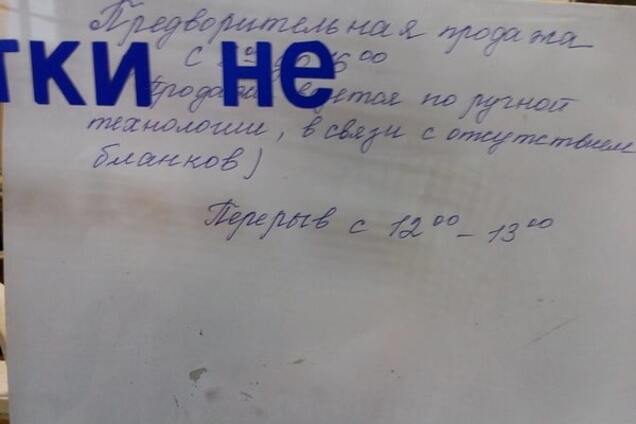 Предворительная продажа
с до 16 00
тки не
Продажа ведется по ручной
технологии, в связи с отсутствием
бланков)
Перерыв с 12 00 – 13 00